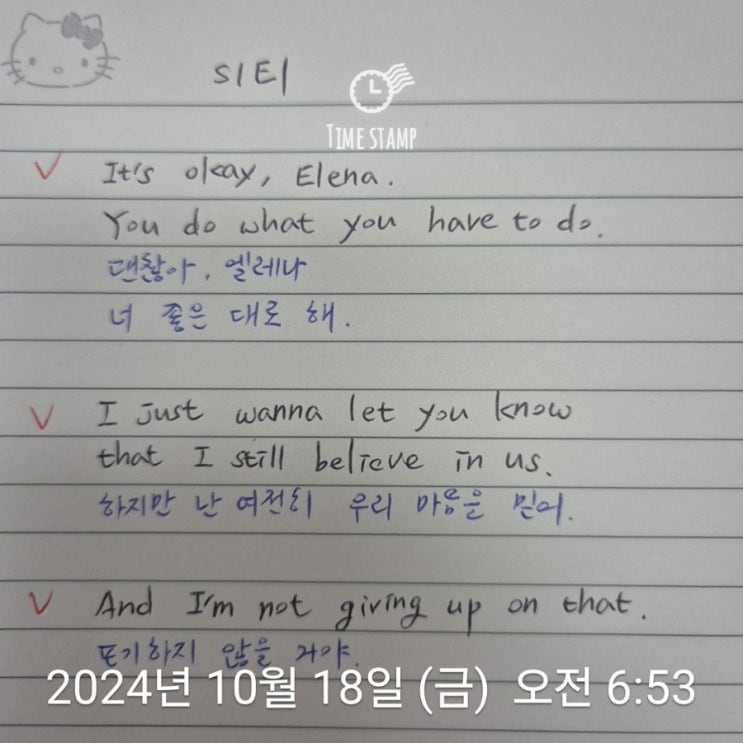 S1E1
TIME STAMP
It's okay, Elena.
You do what you have to do.
괜찮아, 엘레나
너 좋은 대로 해.
I just wanna let you know
that I still believe in us.
하지만 난 여전히 우리 마음을 믿어.
And I'm not giving up on that.
포기하지 않을 거야.
2024년 10월 18일 (금) 오전 6:53